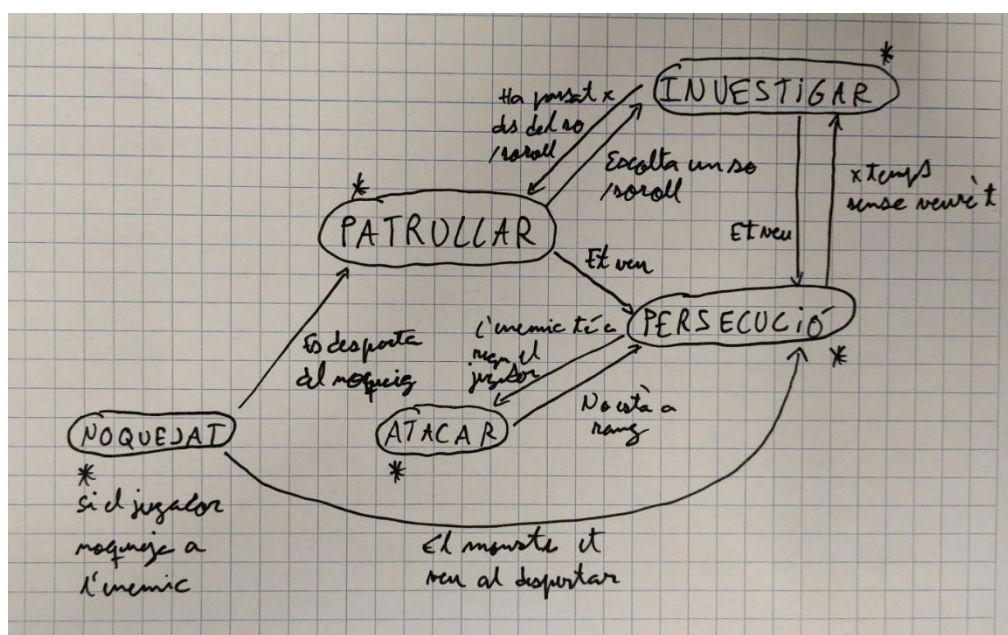 *
INVESTIGAR
Ha passat x
ds del so
/soroll
Escolta un so
/soroll
x temps
sense veure't
*
PATRULLAR
Et veu
Et veu
PERSECUCIÓ
*
l'enemic té a
rang el
jugador
Es desperta
del noqueig
No està a
rang
NOQUEJAT
ATACAR
*
*
Si el jugador
noqueja a
l'enemic
El monstre et
veu al despertar